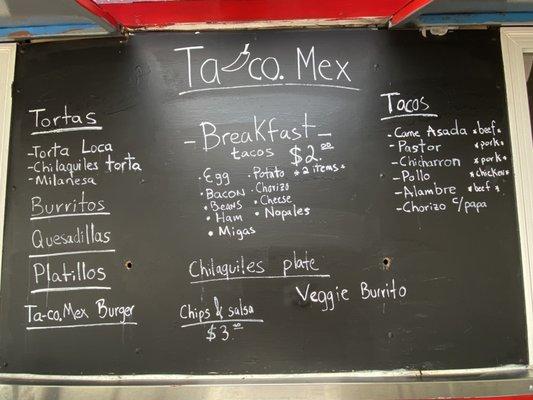 Ta co. Mex
Tortas
-Torta Loca
-Chilaquiles torta
-Milanesa
Burritos
Quesadillas
Platillos
Ta-co.Mex Burger
-Breakfast-
tacos $2.00
*2 items*
• Egg
• Bacon
• Beans
• Ham
• Migas
• Potato
• Chorizo
• Cheese
• Nopales
Chilaquiles plate
Chips & salsa
$3.00
Veggie Burrito
Tacos
-Carne Asada *beef*
-Pastor *pork*
-Chicharron *pork*
-Pollo *chicken*
-Alambre *beef*
-Chorizo c/papa